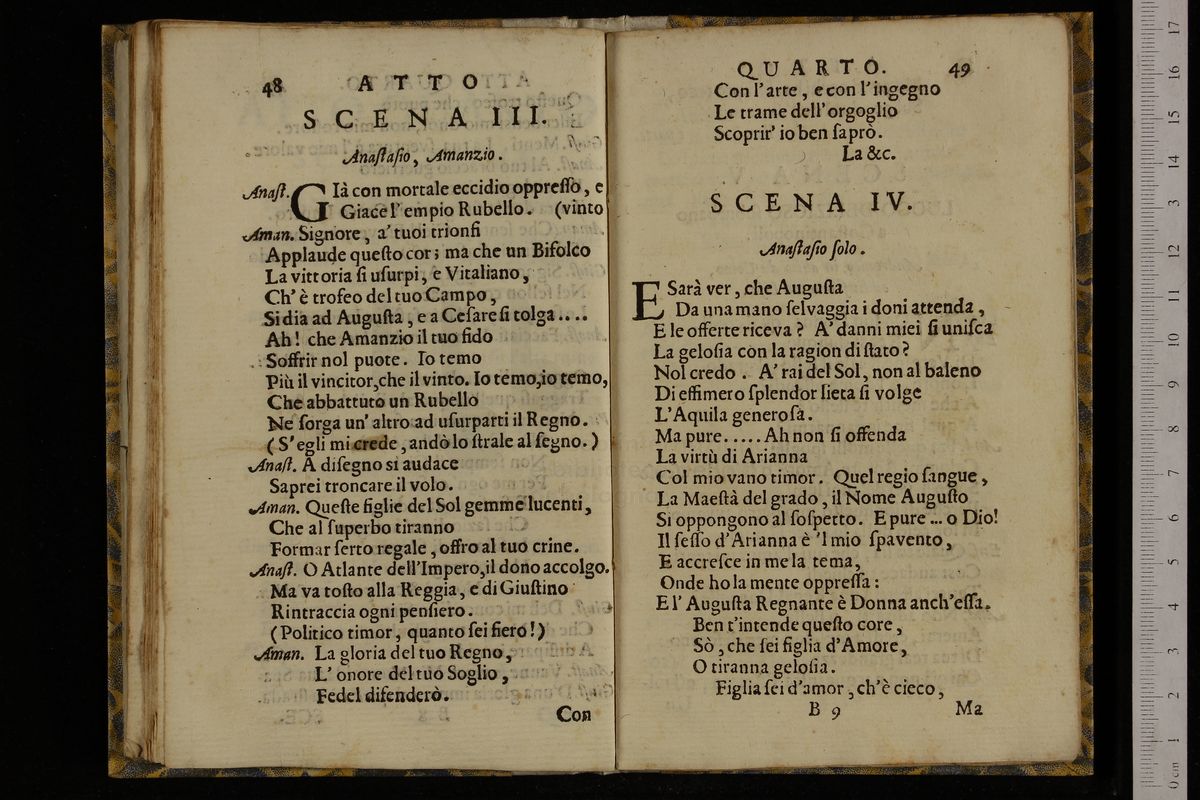 48 ATTO
SCENA III.
Anaſtaſio, Amanzio.
Anaſt. Già con mortale eccidio oppreſſo, e
Giace l'empio Rubello. (vinto
Aman. Signore, a' tuoi trionfi
Applaude queſto cor; ma che un Bifolco
La vittoria ſi uſurpi, e Vitaliano,
Ch' è trofeo del tuo Campo,
Si dia ad Auguſta, e a Ceſare ſi tolga....
Ah! che Amanzio il tuo fido
Soffrir nol puote. Io temo
Più il vincitor, che il vinto. Io temo, io temo,
Che abbattuto un Rubello
Ne ſorga un' altro ad uſurparti il Regno.
(S' egli mi crede, andò lo ſtrale al ſegno.)
Anaſt. A diſegno si audace
Saprei troncare il volo.
Aman. Queſte figlie del Sol gemme lucenti,
Che al ſuperbo tiranno
Formar ſerto regale, offro al tuo crine.
Anaſt. O Atlante dell'Impero, il dono accolgo.
Ma va toſto alla Reggia, e di Giuſtino
Rintraccia ogni penſiero.
(Politico timor, quanto ſei fiero!)
Aman. La gloria del tuo Regno,
L' onore del tuo Soglio,
Fedel difenderò.
Con
QUARTO. 49
Con l'arte, e con l'ingegno
Le trame dell' orgoglio
Scoprir' io ben ſaprò.
La &c.
SCENA IV.
Anaſtaſio ſolo.
E Sarà ver, che Auguſta
Da una mano ſelvaggia i doni attenda,
E le offerte riceva? A' danni miei ſi uniſca
La geloſia con la ragion di ſtato?
Nol credo. A' rai del Sol, non al baleno
Di effimero ſplendor lieta ſi volge
L'Aquila generoſa.
Ma pure..... Ah non ſi offenda
La virtù di Arianna
Col mio vano timor. Quel regio ſangue,
La Maeſtà del grado, il Nome Auguſto
Si oppongono al ſoſpetto. E pure ... o Dio!
Il ſeſſo d'Arianna è 'l mio ſpavento,
E accreſce in me la tema,
Onde ho la mente oppreſſa:
E l' Auguſta Regnante è Donna anch'eſſa.
Ben t'intende queſto core,
Sò, che ſei figlia d'Amore,
O tiranna geloſia.
Figlia ſei d'amor, ch'è cieco,
B 9 Ma